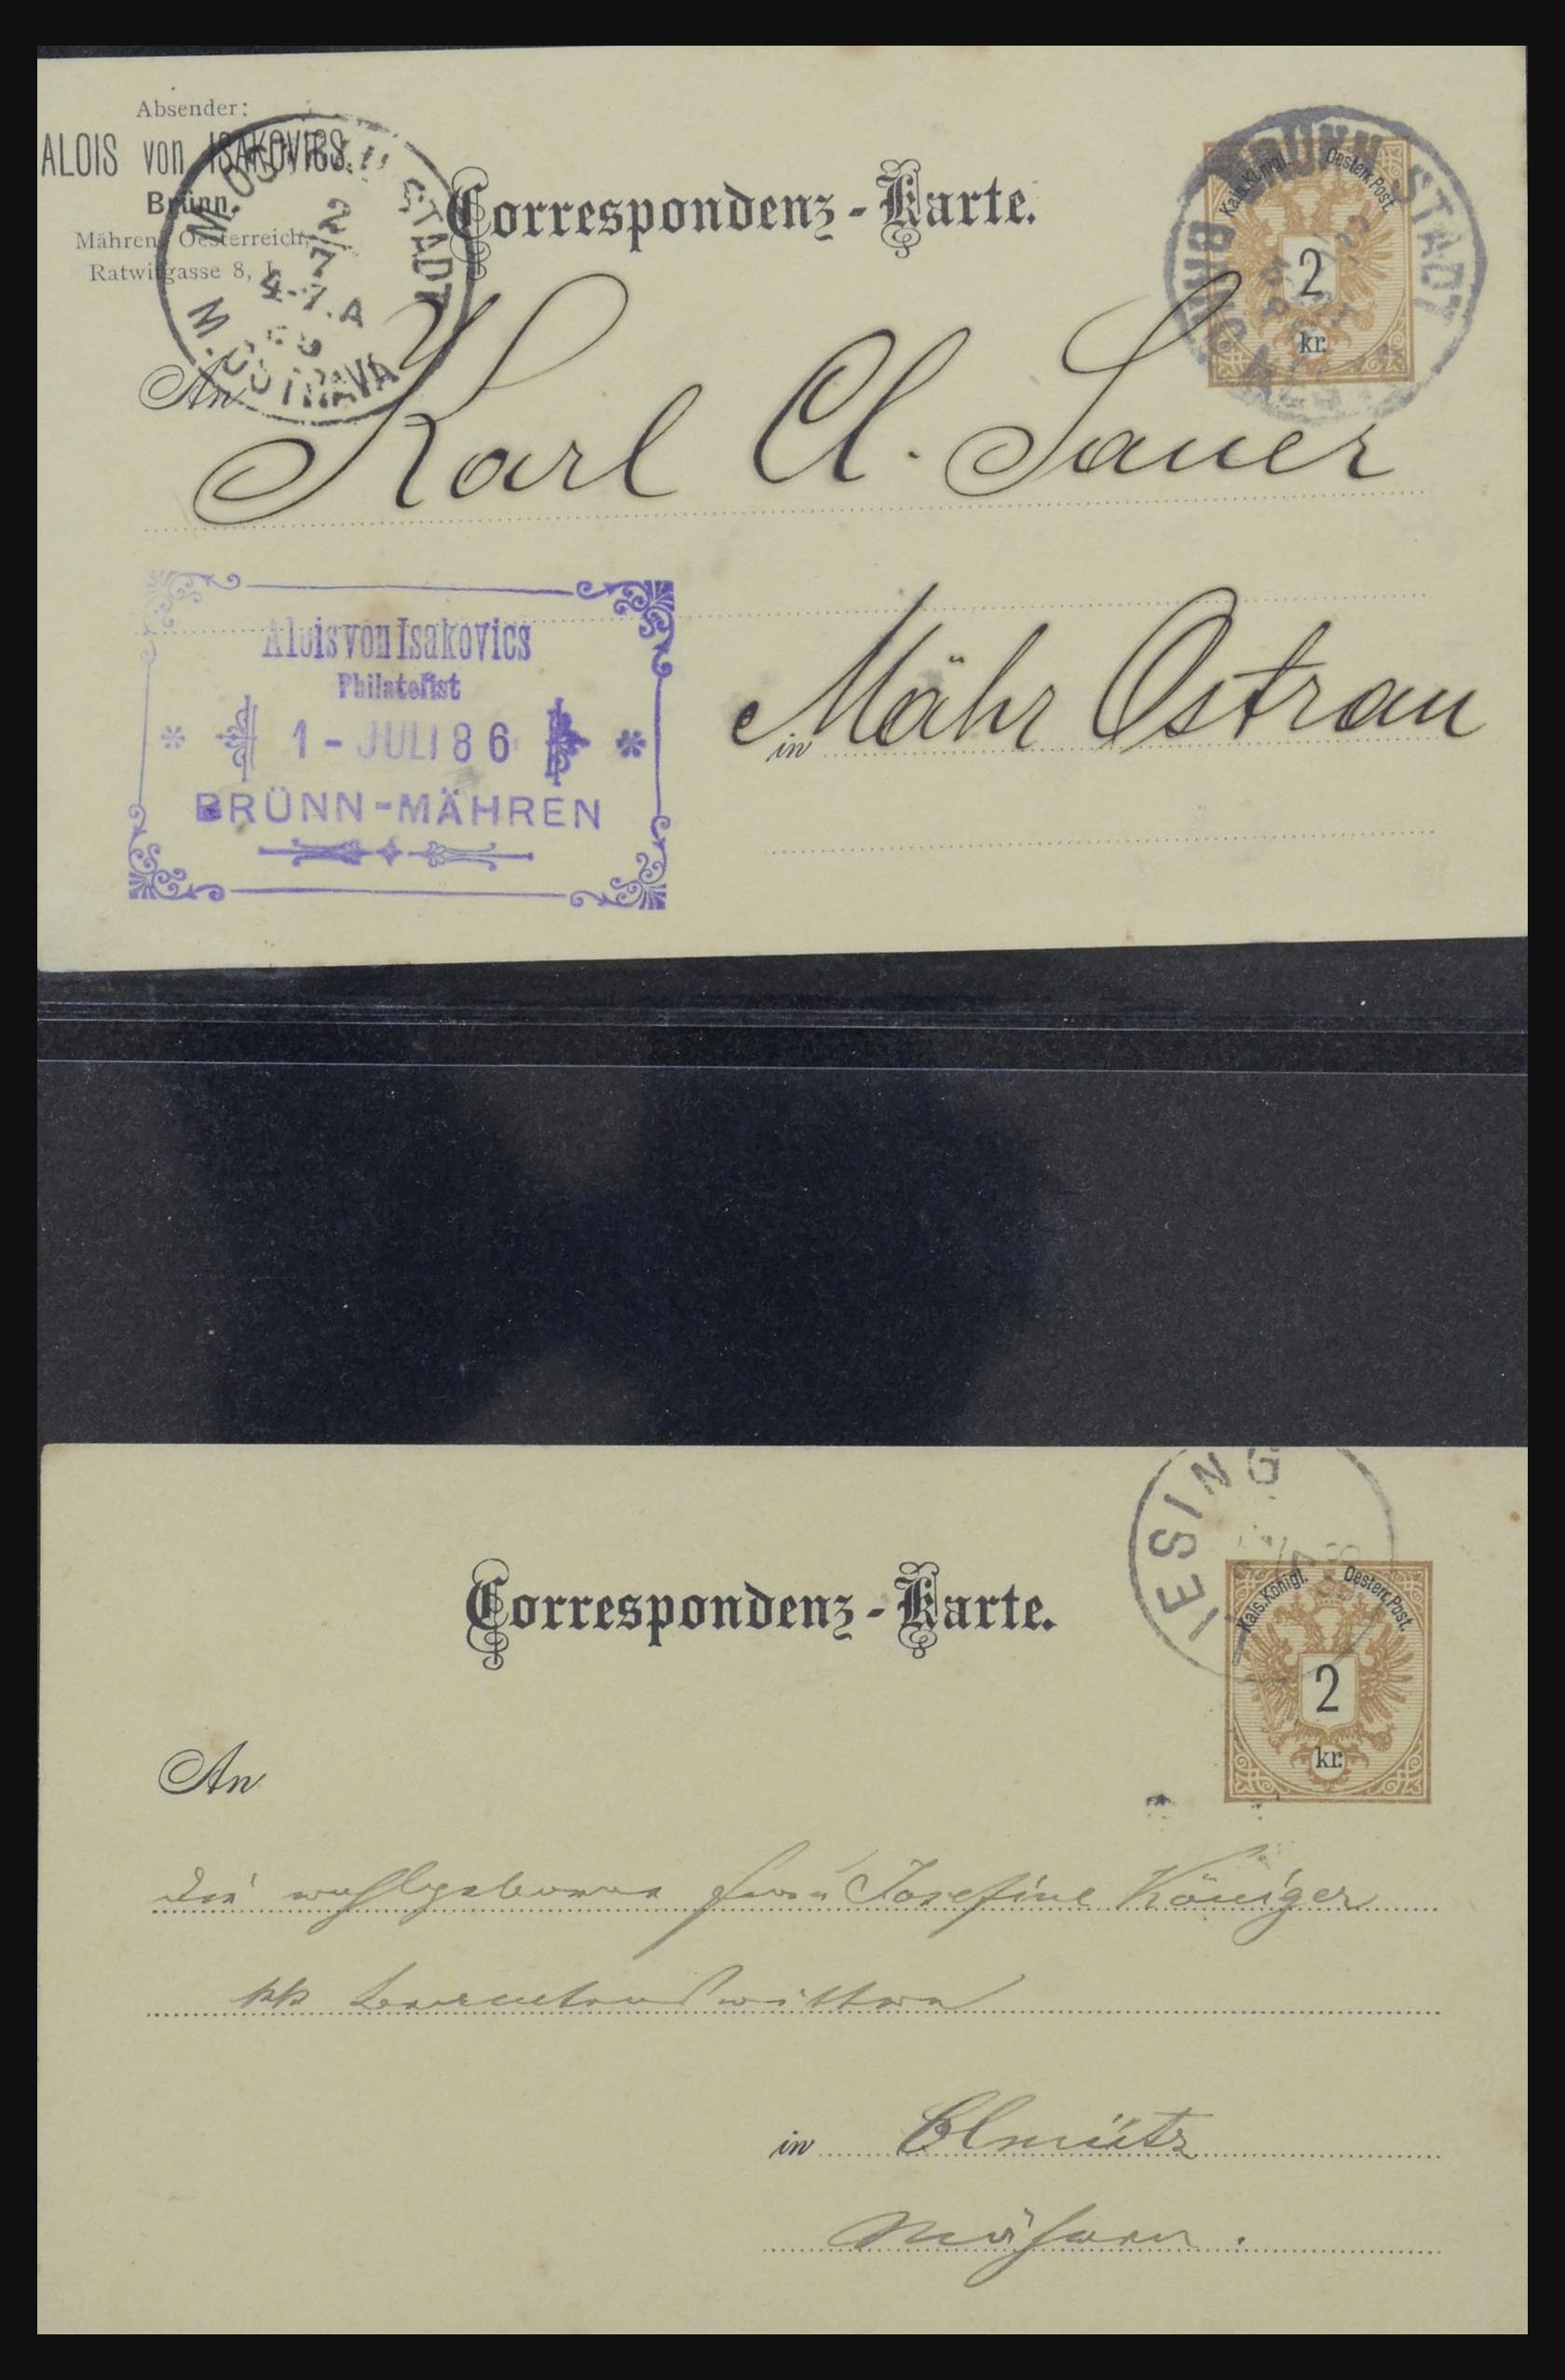 Absender:
ALOIS von ISAKOVICS.
Brünn.
Mähren, Oesterreich,
Ratwitgasse 8, I.
M. OSTRAU STADT
2/7
4-7.A
M. OSTRAVA
Correspondenz-Karte.
BRÜNN STADT
BRNO
Kais. Königl. Oesterr. Post.
2
kr.
An Karl Cl. Sauer
Alois von Isakovics
Philatelist
1 - JULI 86
BRÜNN-MÄHREN
in Mähr Ostrau
IESING
Correspondenz-Karte.
Kais. Königl. Oesterr. Post.
2
kr.
An
wohlgeborene Frau Josefine Königer
kk
in Olmütz
Mähren.